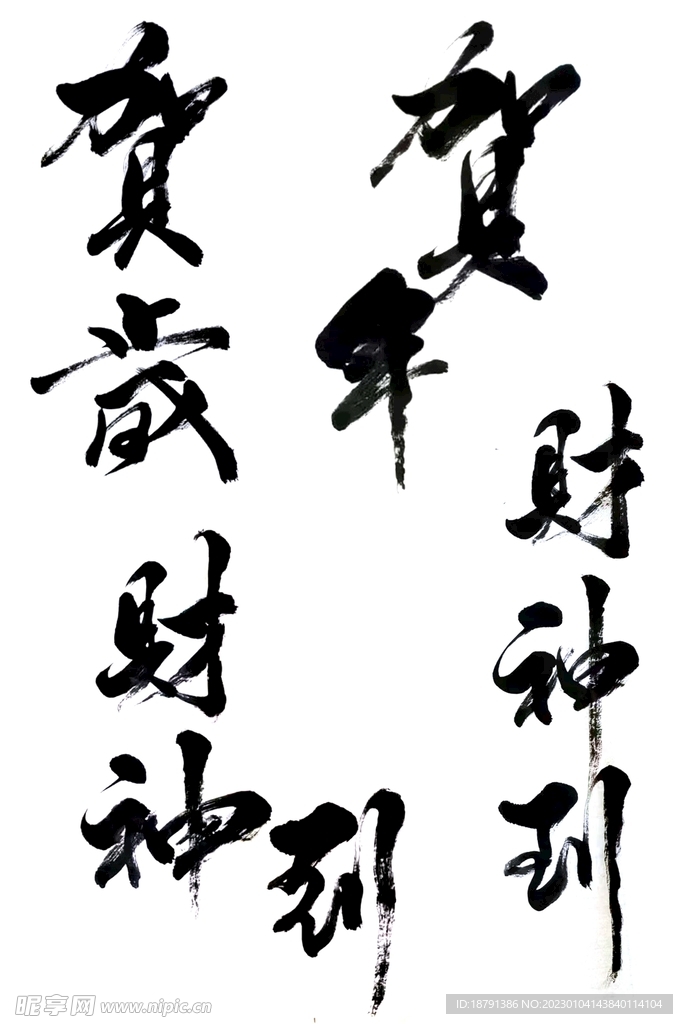 賀歲
賀年
財神到
財神到
昵享网 www.nipic.cn
ID:18791386 NO:20230104143840114104